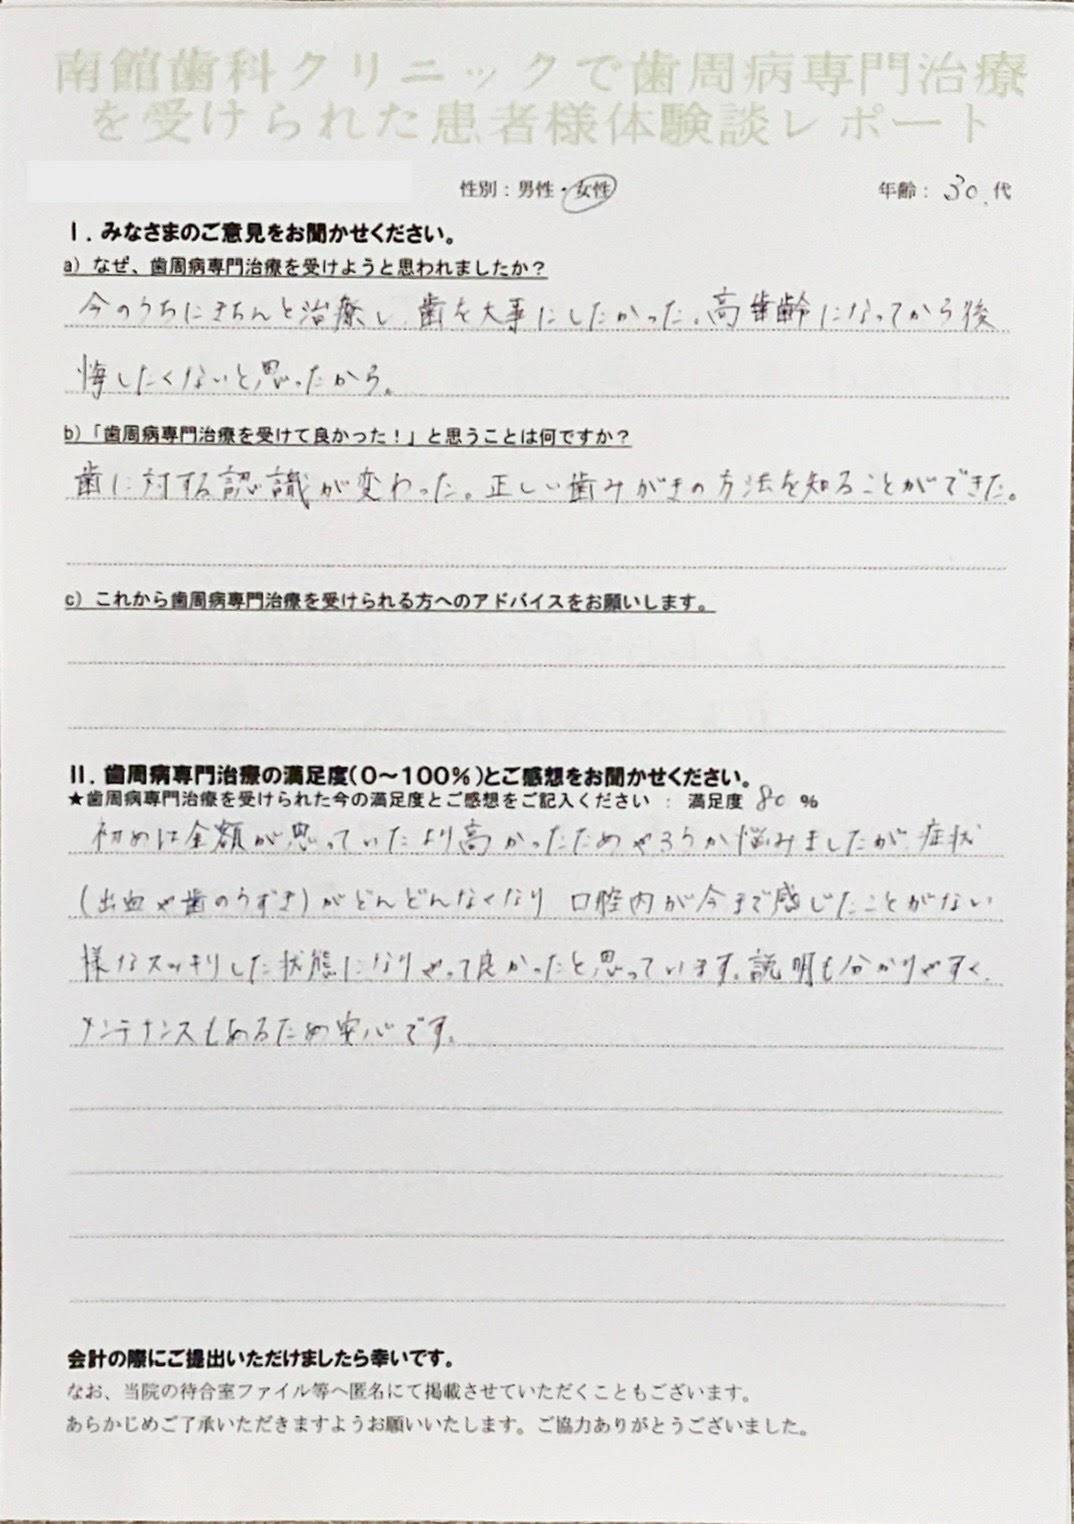 南館歯科クリニックで歯周病専門治療
を受けられた患者様体験談レポート
性別：男性・女性 年齢：30.代
Ⅰ．みなさまのご意見をお聞かせください。
a）なぜ、歯周病専門治療を受けようと思われましたか？
今のうちにきちんと治療し、歯を大事にしたかった。高歯齢になってから後
悔したくないと思ったから。
b）「歯周病専門治療を受けて良かった！」と思うことは何ですか？
歯に対する認識が変わった。正しい歯みがきの方法を知ることができた。
c）これから歯周病専門治療を受けられる方へのアドバイスをお願いします。
Ⅱ．歯周病専門治療の満足度（0～100％）とご感想をお聞かせください。
★歯周病専門治療を受けられた今の満足度とご感想をご記入ください ： 満足度 80 ％
初めは金額が思っていたより高かったためやろうか悩みましたが、症状
(出血や歯のうずき)がどんどんなくなり 口腔内が今まで感じたことがない
様なスッキリした状態になりやって良かったと思っています。説明も分かりやすく、
メンテナンスもあるため安心です。
会計の際にご提出いただけましたら幸いです。
なお、当院の待合室ファイル等へ匿名にて掲載させていただくこともございます。
あらかじめご了承いただきますようお願いいたします。ご協力ありがとうございました。